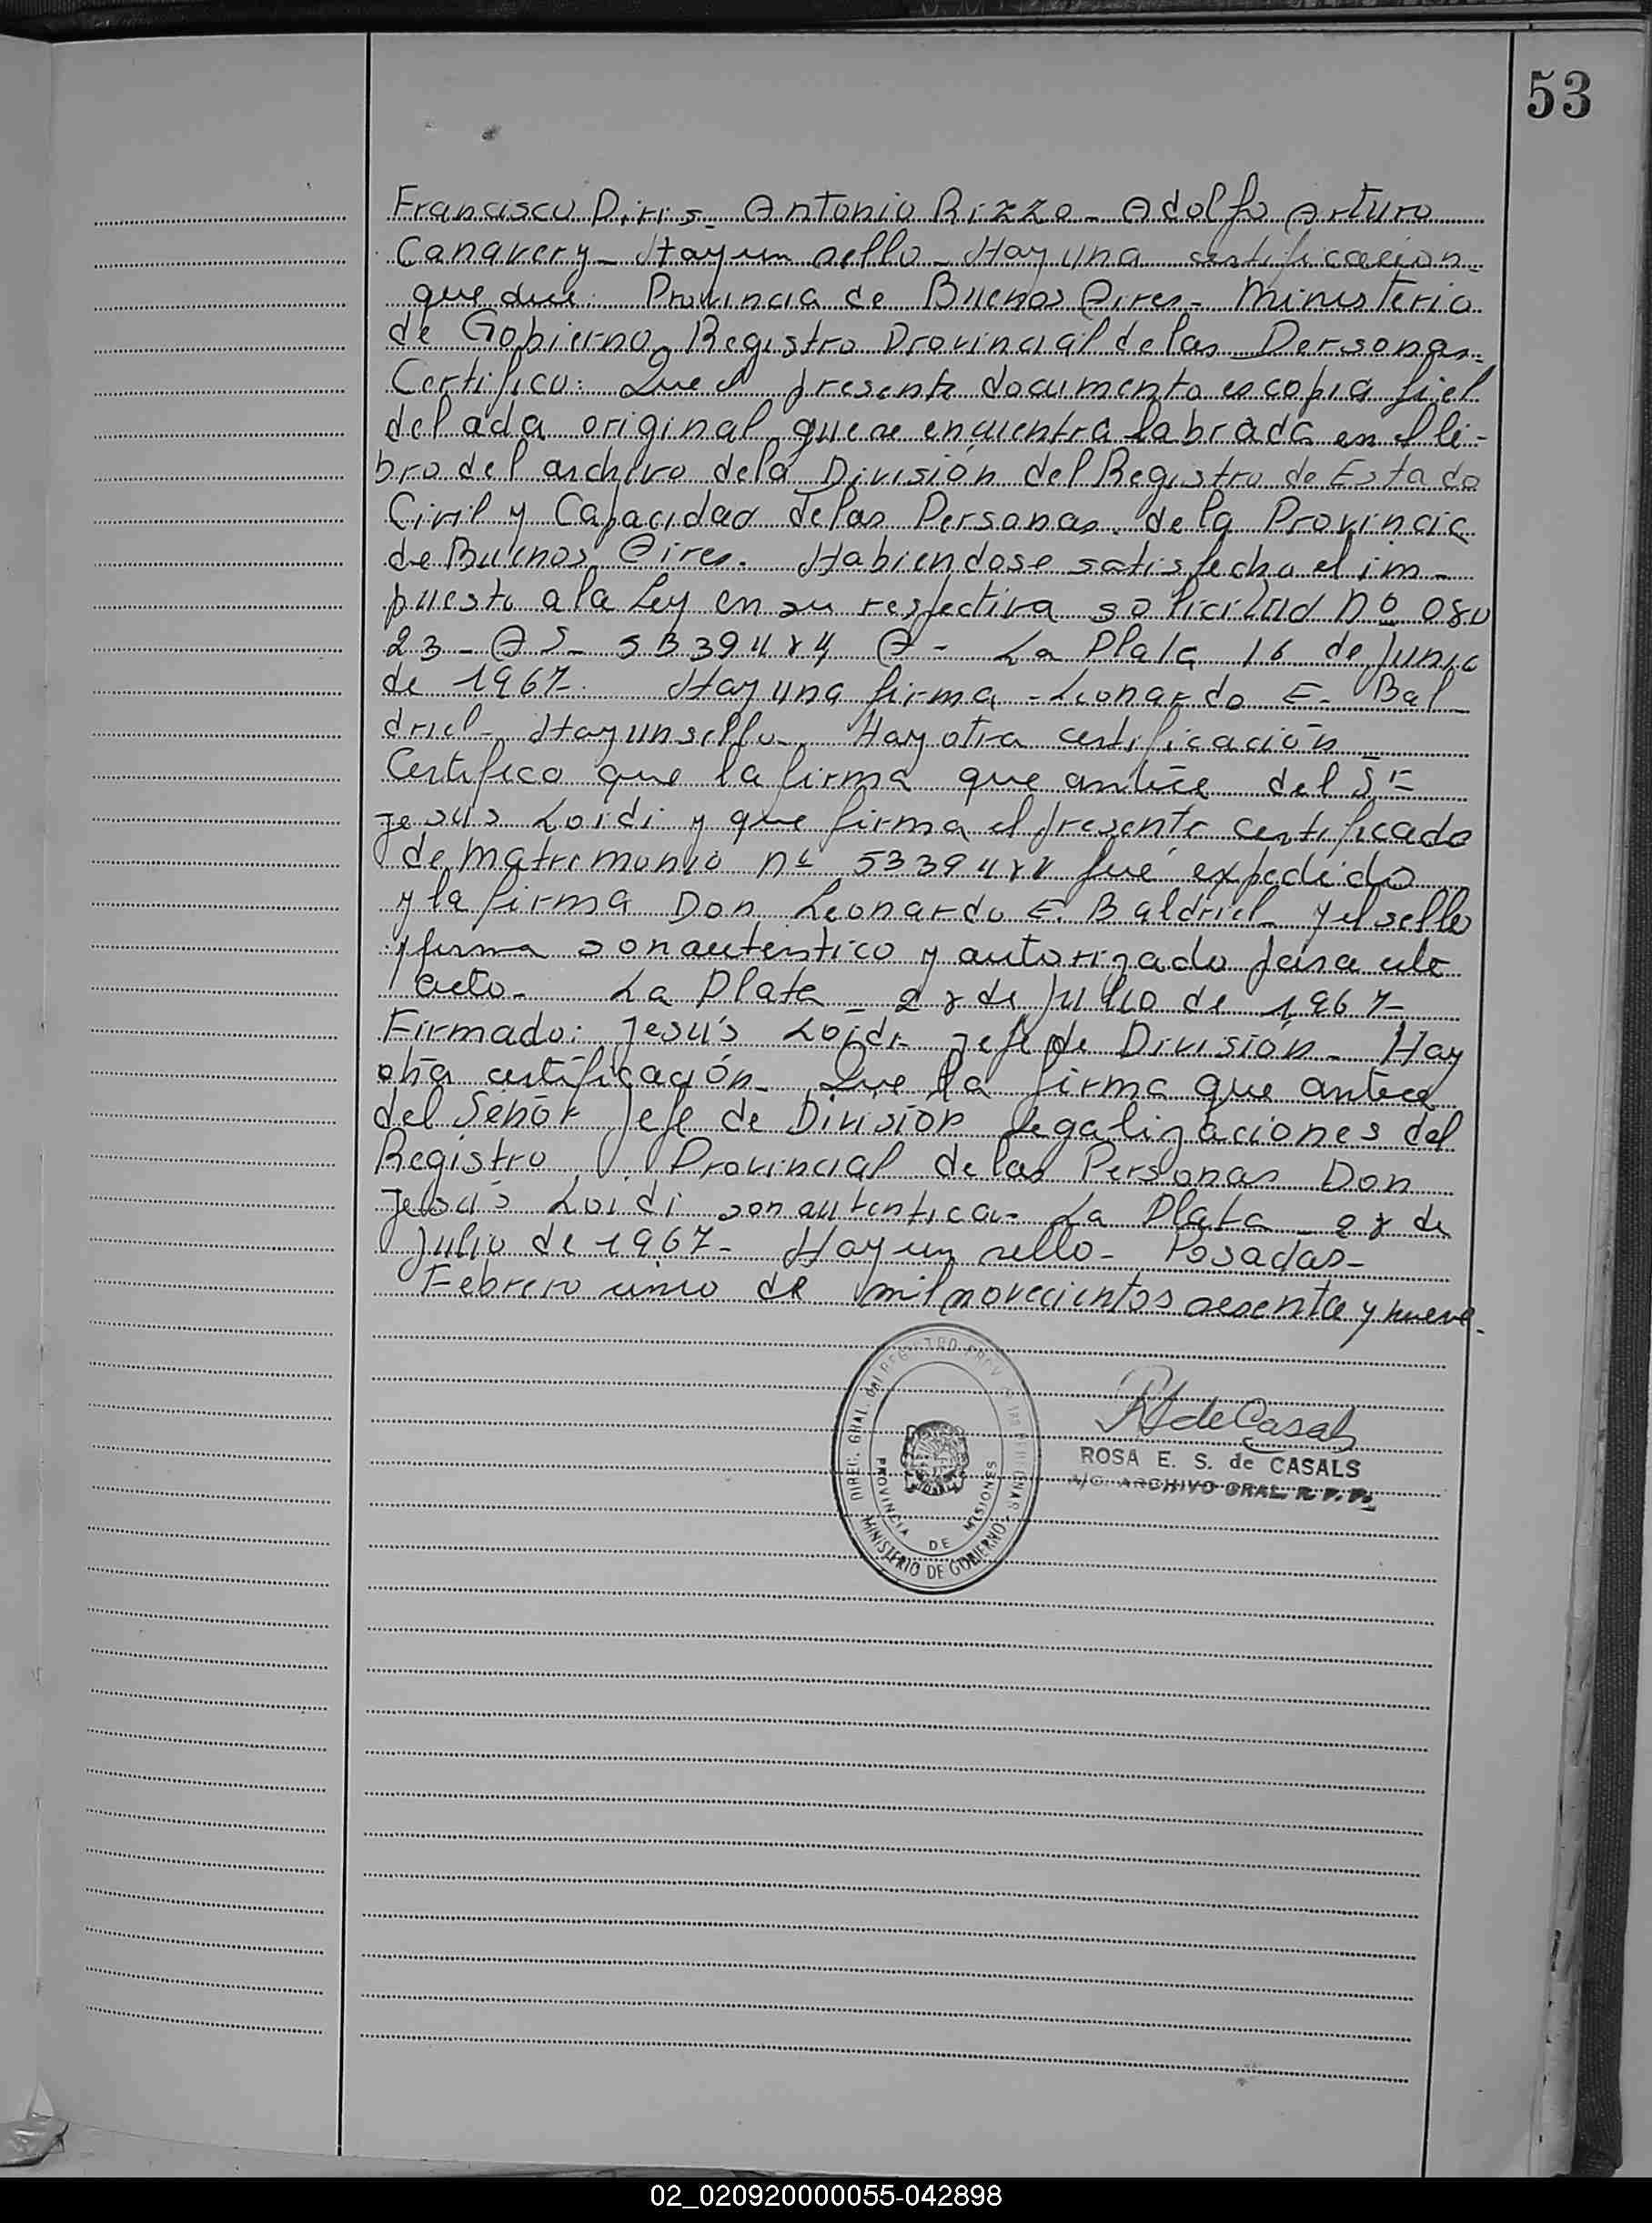 53
Francisco Piris - Antonio Rizzo - Adolfo Arturo
Canavery - Hay un sello - Hay una certificacion -
que dice: Provincia de Buenos Aires - Ministerio
de Gobierno - Registro Provincial de las Personas -
Certifico: Que el presente documento es copia fiel
del acta original que se encuentra labrada en el li-
bro del archivo de la División del Registro de Estado
Civil y Capacidad de las Personas de la Provincia
de Buenos Aires. Habiendose satisfecho el im-
puesto a la Ley en su respectiva solicitud Nº 080
23 - A S - A - La Plata 16 de Junio
de 1967. Hay una firma - Leonardo E. Bal-
driel - Hay un sello - Hay otra certificación
Certifico que la firma que antece del Sr
Jesus Loidi y que firma el presente certificado
de matrimonio nº fué expedido
y la firma Don Leonardo E. Baldriel y el sello
y firma son autentico y autorizado para este
acto - La Plata - 28 de Julio de 1967 -
Firmado: Jesús Loidi - Jefe de División - Hay
otra certificación - Que la firma que antece
del Señor Jefe de División Legalizaciones del
Registro Provincial de las Personas Don
Jesús Loidi son autentica - La Plata - 28 de
Julio de 1967 - Hay un sello - Posadas -
Febrero cinco de mil novecientos sesenta y nueve.
DIREC. GRAL. del REGISTRO PROV. de las PERSONAS
PROVINCIA DE MISIONES
MINISTERIO DE GOBIERNO
R de Casals
ROSA E. S. de CASALS
A/C. ARCHIVO GRAL. R. P. P.
02_020920000055-042898